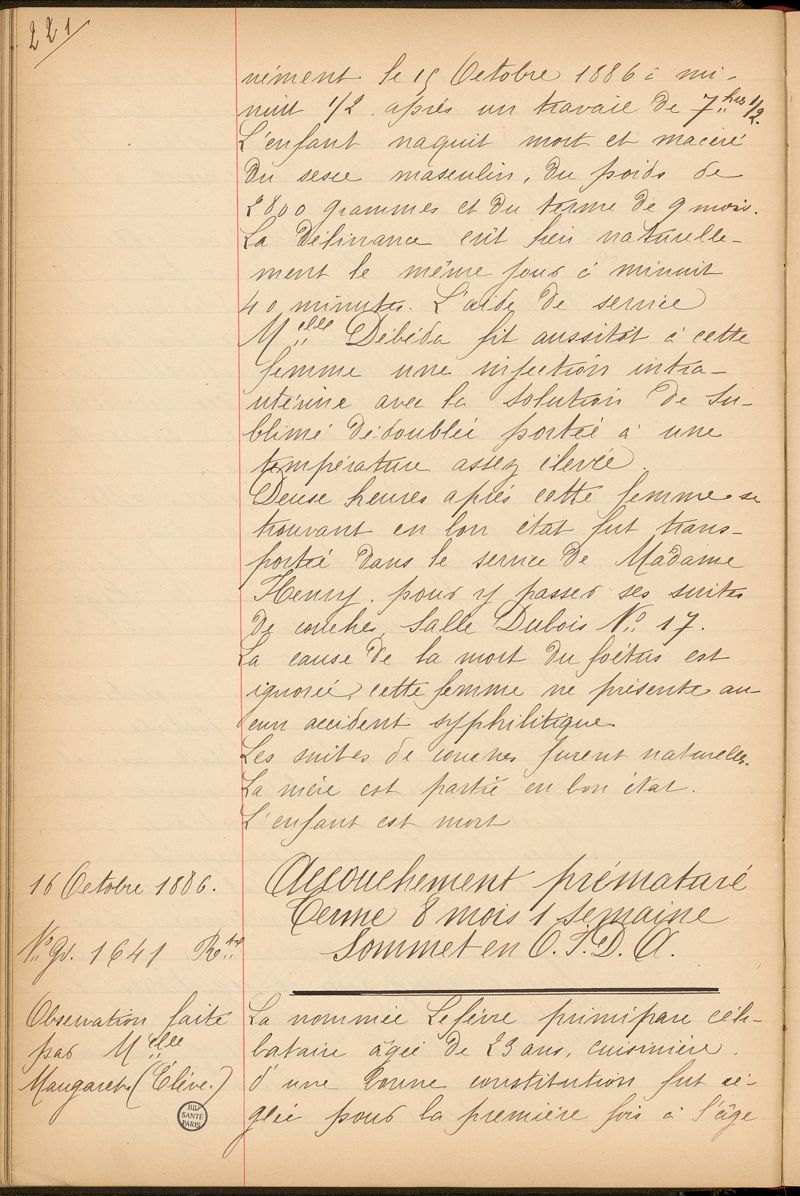 221
nément le 15 Octobre 1886 à mi-
nuit 1/2 après un travail de 7 hres 1/2.
L'enfant naquit mort et maceré
du sexe masculin, du poids de
2800 grammes et du terme de 9 mois.
La délivrance eût lieu naturelle-
ment le même jour à minuit
40 minutes. L'aide de service
Melle Débéda fit aussitôt à cette
femme une injection intra-
utérine avec la solution de su-
blimé dédoublée portée à une
température assez élevée.
Deux heures après cette femme se
trouvant en bon état fut trans-
portée dans le service de Madame
Henry, pour y passer ses suites
de couches, Salle Dubois No 17.
La cause de la mort du foetus est
ignorée, cette femme ne présente au-
cun accident syphilitique
Les suites de couches furent naturelles.
La mère est partie en bon état.
L'enfant est mort
16 Octobre 1886.
No Gl. 1641 Rtre
Observation faite
par Melle
Maugaret (Élève.)
Accouchement prématuré
Terme 8 mois 1 semaine
Sommet en O.I.D.A.
La nommée Lefèvre primipare céli-
bataire âgée de 23 ans, cuisinière.
d'une bonne constitution fut ré-
glée pour la première fois à l'âge
SANTÉ
PARIS